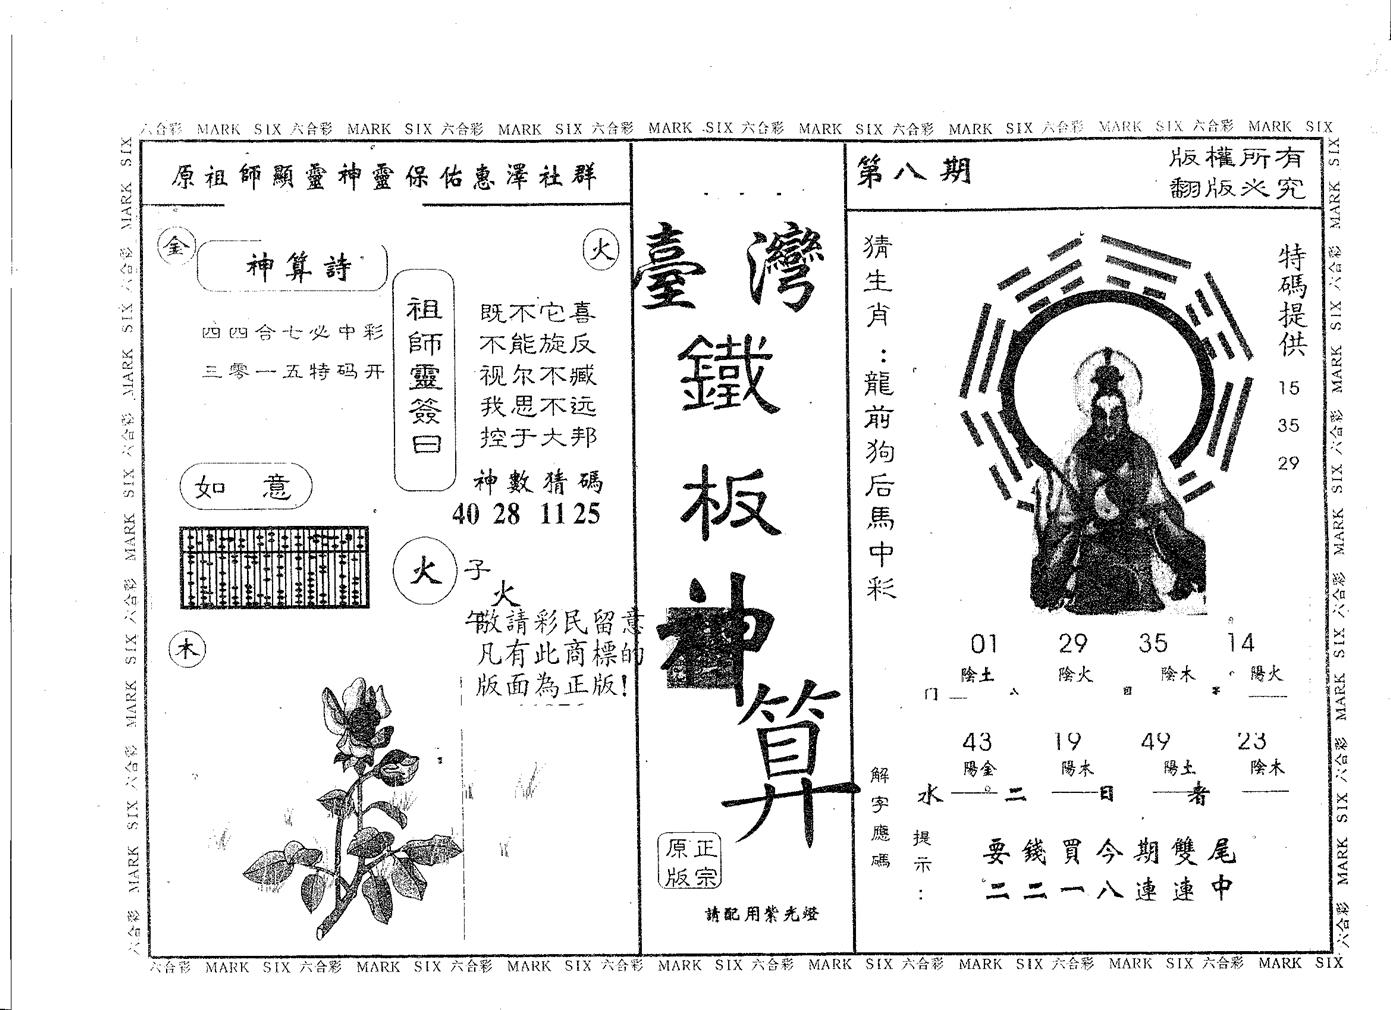 六合彩 MARK SIX 六合彩 MARK SIX 六合彩 MARK SIX 六合彩 MARK SIX 六合彩 MARK SIX 六合彩 MARK SIX 六合彩 MARK SIX 六合彩 MARK SIX
原祖師顯靈神靈保佑惠澤社群
金
神算詩
火
四四合七必中彩
三零一五特码开
祖師靈簽曰
既不它喜
不能旋反
视尔不臧
我思不远
控于大邦
神數猜碼
40 28 11 25
如意
火
子
火
午
敬請彩民留意
凡有此商標的
版面為正版!
木
臺灣
鐵
板
神
算
正宗
原版
請配用紫光燈
第八期
版權所有
翻版必究
猜生肖:龍前狗后馬中彩
特碼提供
15
35
29
01 29 35 14
陰土 陰火 陰木 陽火
门 八 目
43 19 49 23
陽金 陽木 陽土 陰木
水 二 日 者
解字應碼
提示:
要錢買今期雙尾
二二一八連連中
六合彩 MARK SIX 六合彩 MARK SIX 六合彩 MARK SIX 六合彩 MARK SIX 六合彩 MARK SIX 六合彩 MARK SIX 六合彩 MARK SIX 六合彩 MARK SIX